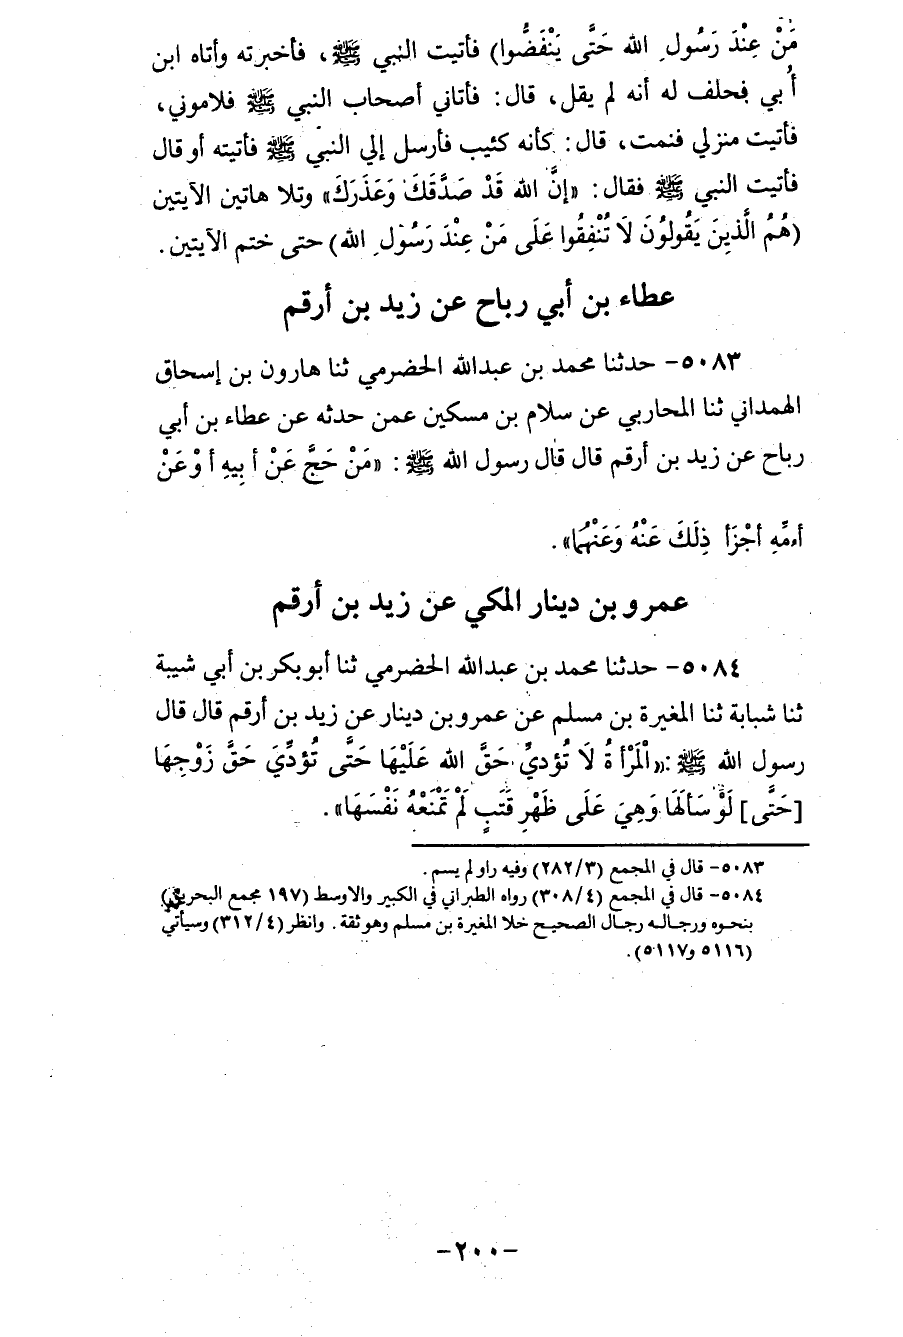 مَنْ عِنْدَ رَسُولِ الله حَتَّى يَنْفَضُّوا) فأتيت النبي ﷺ، فأخبرته وأتاه ابن
أُبي فحلف له أنه لم يقل، قال: فأتاني أصحاب النبي ﷺ فلاموني،
فأتيت منزلي فنمت، قال: كأنه كئيب فأرسل إلي النبي ﷺ فأتيته أو قال
فأتيت النبي ﷺ فقال: «إنَّ الله قَدْ صَدَّقَكَ وَعَذَرَكَ» وتلا هاتين الآيتين
(هُمُ الَّذِينَ يَقُولُونَ لَا تُنْفِقُوا عَلَى مَنْ عِنْدَ رَسُولِ الله) حتى ختم الآيتين.
عطاء بن أبي رباح عن زيد بن أرقم
٥٠٨٣- حدثنا محمد بن عبدالله الحضرمي ثنا هارون بن إسحاق
الهمداني ثنا المحاربي عن سلام بن مسكين عمن حدثه عن عطاء بن أبي
رباح عن زيد بن أرقم قال قال رسول الله ﷺ: «مَنْ حَجَّ عَنْ أبِيهِ أوْ عَنْ
أمِّهِ أجْزَأ ذِلَكَ عَنْهُ وَعَنْهُمَا».
عمرو بن دينار المكي عن زيد بن أرقم
٥٠٨٤- حدثنا محمد بن عبدالله الحضرمي ثنا أبو بكر بن أبي شيبة
ثنا شبابة ثنا المغيرة بن مسلم عن عمرو بن دينار عن زيد بن أرقم قال قال
رسول الله ﷺ: «الْمَرْأةُ لَا تُؤدِيِّ حَقَّ الله عَلَيْهَا حَتَّى تُؤدِّيَ حَقَّ زَوْجِهَا
[حَتَّى] لَوْ سَألَهَا وَهِيَ عَلَى ظَهْرِ قَتَبٍ لَمْ تَمْنَعْهُ نَفْسَهَا».
٥٠٨٣- قال في المجمع (٢٨٢/٣) وفيه راو لم يسم.
٥٠٨٤- قال في المجمع (٣٠٨/٤) رواه الطبراني في الكبير والاوسط (١٩٧ مجمع البحرين)
بنحوه ورجاله رجال الصحيح خلا المغيرة بن مسلم وهو ثقة. وانظر (٣١٢/٤) وسيأتي
(٥١١٦ و٥١١٧).
-٢٠٠-